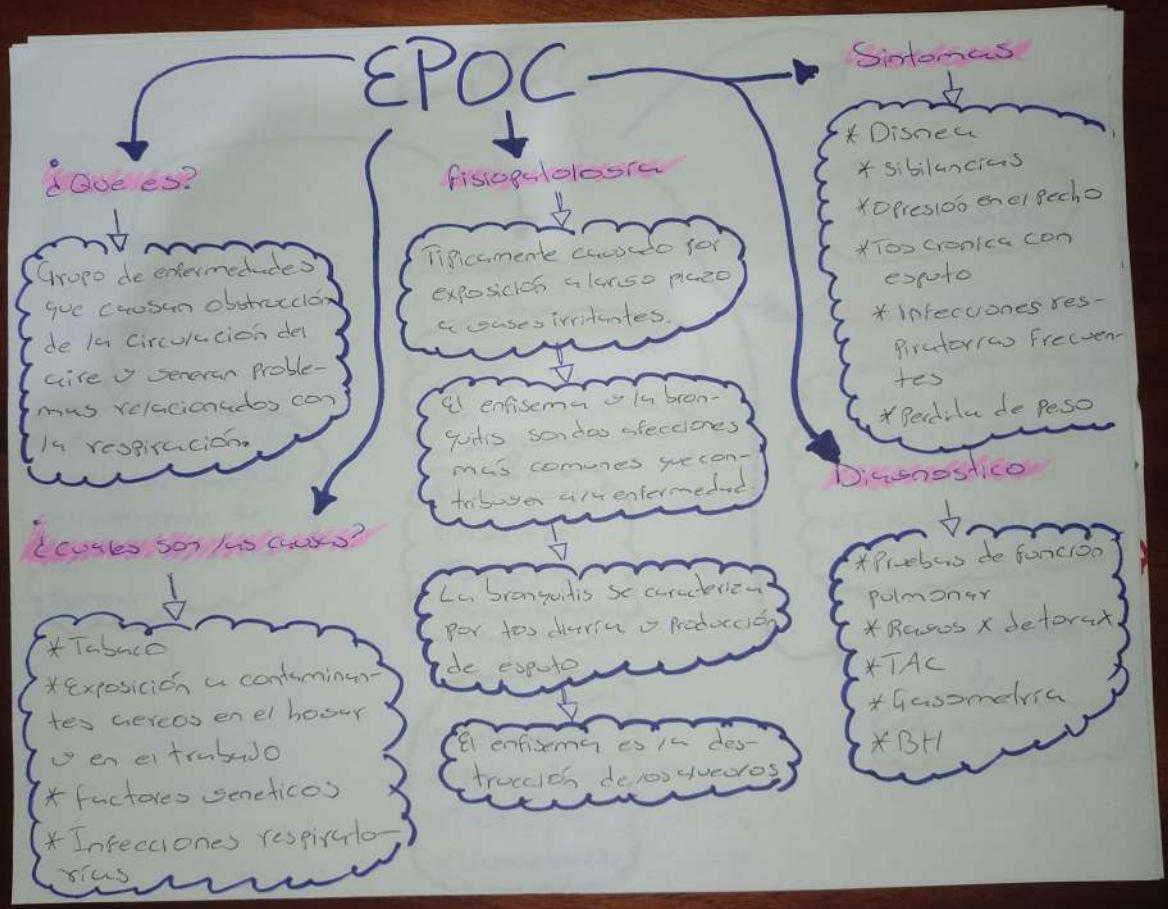 EPOC
¿Que es?
Grupo de enfermedades
que causan obstrucción
de la circulación del
aire y generan proble-
mas relacionados con
la respiración.
¿cuales son las causas?
* Tabaco
* Exposición a contaminan-
tes aereos en el hogar
y en el trabajo
* factores geneticos
* Infecciones respirato-
rias
fisiopatología
Tipicamente causado por
exposición a largo plazo
a gases irritantes.
El enfisema y la bron-
quitis son dos afecciones
más comunes que con-
tribuyen a la enfermedad.
La bronquitis se caracteriza
por tos diaria y producción
de esputo
El enfisema es la des-
trucción de los alveolos
Sintomas
* Disnea
* sibilancias
* Opresión en el pecho
* Tos cronica con
esputo
* Infecciones res-
piratorias frecuen-
tes
* perdida de peso
Diagnostico
* Pruebas de funcion
pulmonar
* Rayos X de torax
* TAC
* Gasometría
* BH